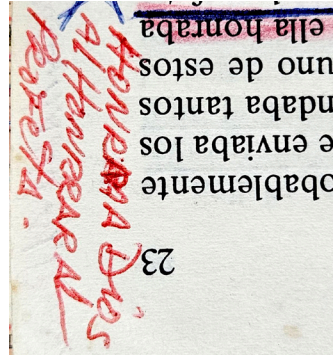 23
obablemente
e enviaba los
ndaba tantos
uno de estos
ella honraba
A Dios
Al HONRAR AL
PROFETA.